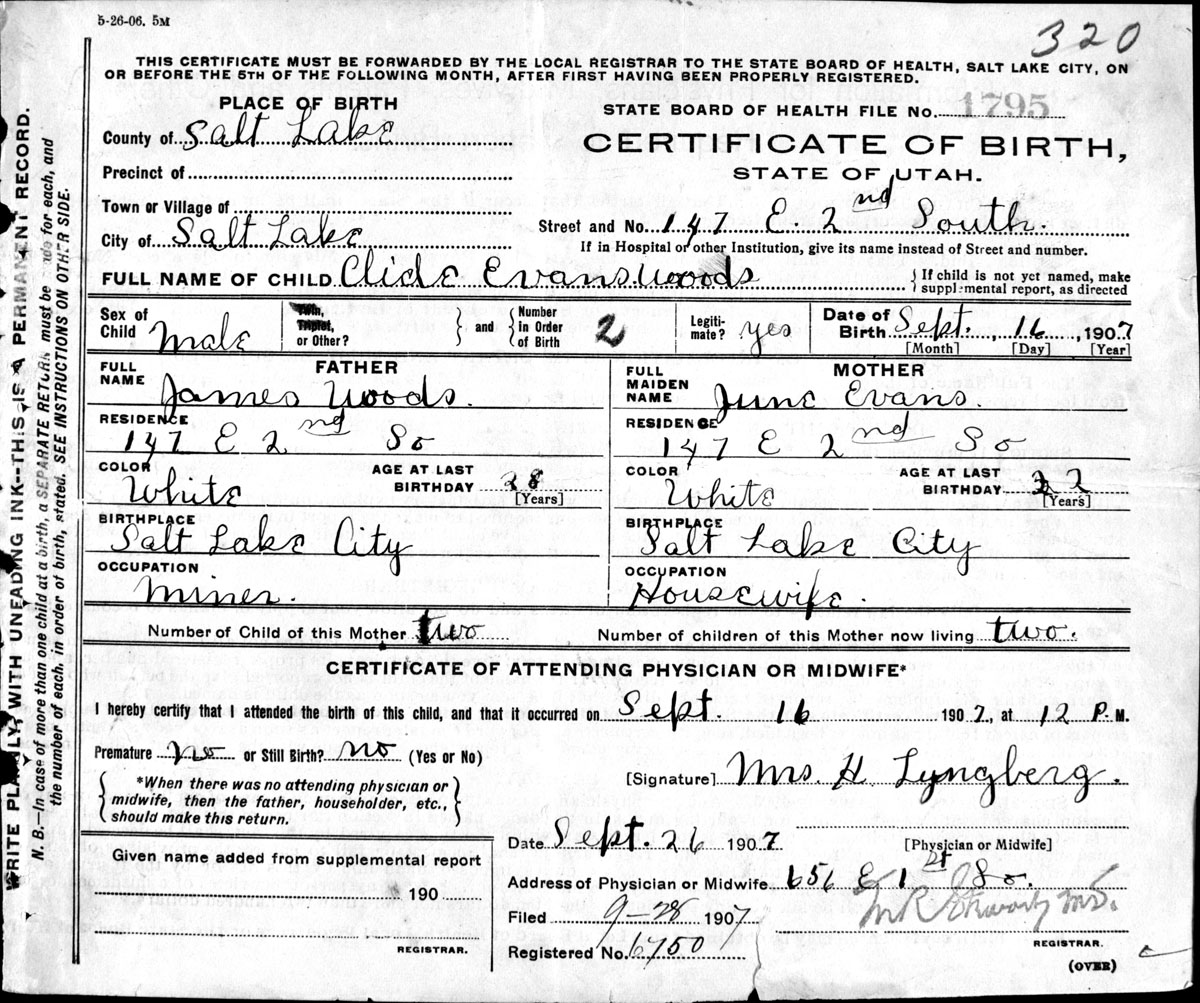 5-26-06. 5M
320
THIS CERTIFICATE MUST BE FORWARDED BY THE LOCAL REGISTRAR TO THE STATE BOARD OF HEALTH, SALT LAKE CITY, ON
OR BEFORE THE 5TH OF THE FOLLOWING MONTH, AFTER FIRST HAVING BEEN PROPERLY REGISTERED.
PLACE OF BIRTH
STATE BOARD OF HEALTH FILE No. 1795
County of Salt Lake
CERTIFICATE OF BIRTH,
Precinct of
STATE OF UTAH.
Town or Village of
Street and No. 147 E. 2nd South.
City of Salt Lake
If in Hospital or other Institution, give its name instead of Street and number.
FULL NAME OF CHILD Clide Evans Woods
} If child is not yet named, make
supplemental report, as directed
Sex of Child Male
Twin, Triplet, or Other?
} and { Number in Order of Birth 2
Legitimate? yes
Date of Birth Sept. 16, 1907
[Month] [Day] [Year]
FATHER
FULL NAME James Woods.
MOTHER
FULL MAIDEN NAME June Evans.
RESIDENCE 147 E 2nd So
RESIDENCE 147 E 2nd So
COLOR White
AGE AT LAST BIRTHDAY 28 [Years]
COLOR White
AGE AT LAST BIRTHDAY 22 [Years]
BIRTHPLACE Salt Lake City
BIRTHPLACE Salt Lake City
OCCUPATION Miner.
OCCUPATION Housewife.
Number of Child of this Mother two
Number of children of this Mother now living two.
CERTIFICATE OF ATTENDING PHYSICIAN OR MIDWIFE*
I hereby certify that I attended the birth of this child, and that it occurred on Sept. 16 1907, at 12 P.M.
Premature no or Still Birth? no (Yes or No)
{ *When there was no attending physician or
midwife, then the father, householder, etc.,
should make this return. }
[Signature] Mrs. H. Lyngberg.
Date Sept. 26 1907
[Physician or Midwife]
Given name added from supplemental report
190
REGISTRAR.
Address of Physician or Midwife 656 E 1st So.
Filed 9-28 1907
Registered No. 6750
REGISTRAR.
(OVER)
WRITE PLAINLY WITH UNFADING INK—THIS IS A PERMANENT RECORD.
N. B.—In case of more than one child at a birth, a SEPARATE RETURN must be made for each, and
the number of each, in order of birth, stated. SEE INSTRUCTIONS ON OTHER SIDE.